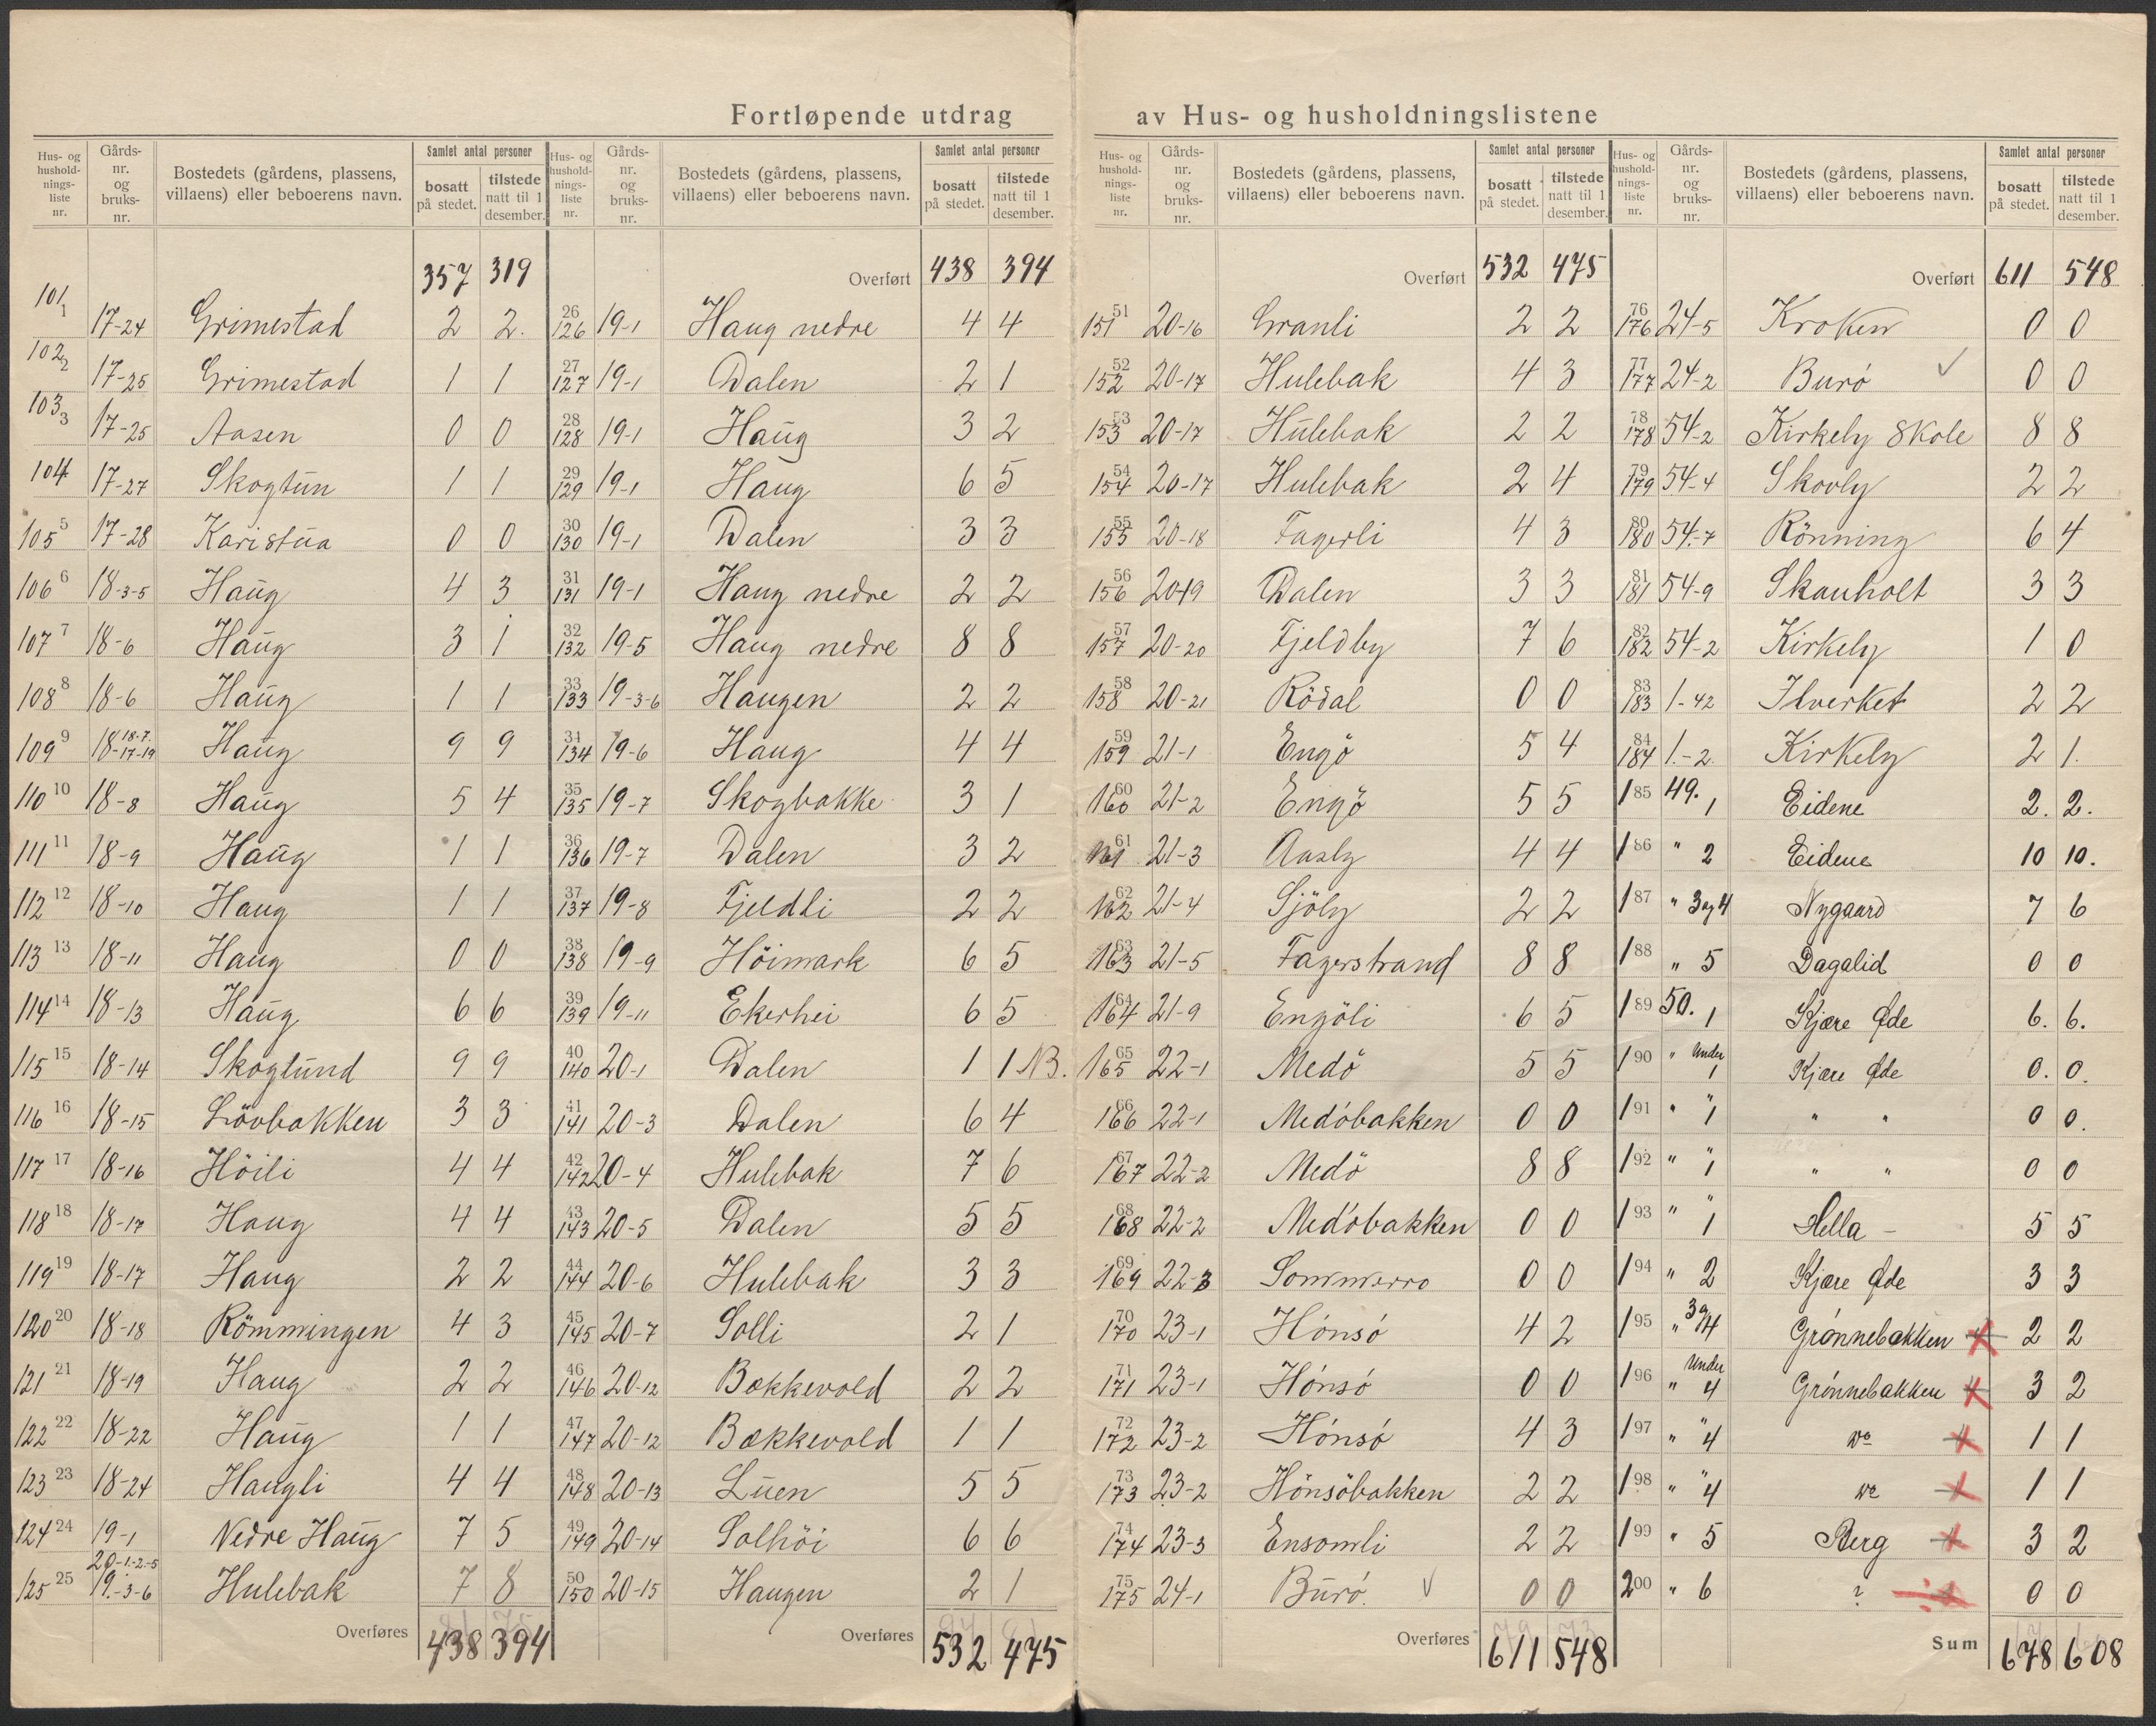 Fortløpende utdrag av Hus- og husholdningslistene
Hus- og hushold-nings-liste nr. | Gårds-nr. og bruks-nr. | Bostedets (gårdens, plassens, villaens) eller beboerens navn. | Samlet antal personer | bosatt på stedet. | tilstede natt til 1 desember.
357 319
101 1 17-24 Grimestad 2 2.
102 2 17-25 Grimestad 1 1
103 3 17-25 Aasen 0 0
104 17-27 Skogtun 1 1
105 5 17-28 Karistua 0 0
106 6 18-3-5 Haug 4 3
107 7 18-6 Haug 3 1
108 8 18-6 Haug 1 1
109 9 18-17-19 18.7. Haug 9 9
110 10 18-8 Haug 5 4
111 11 18-9 Haug 1 1
112 12 18-10 Haug 1 1
113 13 18-11 Haug 0 0
114 14 18-13 Haug 6 6
115 15 18-14 Skoglund 9 9
116 16 18-15 Lövbakken 3 3
117 17 18-16 Höili 4 4
118 18 18-17 Haug 4 4
119 19 18-17 Haug 2 2
120 20 18-18 Römmingen 4 3
121 21 18-19 Haug 2 2
122 22 18-22 Haug 1 1
123 23 18-24 Haugli 4 4
124 24 19-1 Nedre Haug 7 5
125 25 20-1-2-5 19-3-6 Hulebak 7 8
Overføres 438 394
Hus- og hushold-nings-liste nr. | Gårds-nr. og bruks-nr. | Bostedets (gårdens, plassens, villaens) eller beboerens navn. | Samlet antal personer | bosatt på stedet. | tilstede natt til 1 desember.
Overført 438 394
26 126 19-1 Haug nedre 4 4
27 127 19-1 Dalen 2 1
28 128 19-1 Haug 3 2
29 129 19-1 Haug 6 5
30 130 19-1 Dalen 3 3
31 131 19-1 Haug nedre 2 2
32 132 19-5 Haug nedre 8 8
33 133 19-3-6 Haugen 2 2
34 134 19-6 Haug 4 4
35 135 19-7 Skogbakke 3 1
36 136 19-7 Dalen 3 2
37 137 19-8 Fjeldli 2 2
38 138 19-9 Höimark 6 5
39 139 19-11 Ekerhei 6 5
40 140 20-1 Dalen 1 1 NB.
41 141 20-3 Dalen 6 4
42 142 20-4 Hulebak 7 6
43 143 20-5 Dalen 5 5
44 144 20-6 Hulebak 3 3
45 145 20-7 Solli 2 1
46 146 20-12 Bækkevold 2 2
47 147 20-12 Bækkevold 1 1
48 148 20-13 Luen 5 5
49 149 20-14 Solhöi 6 6
50 150 20-15 Haugen 2 1
Overføres 532 475
Hus- og hushold-nings-liste nr. | Gårds-nr. og bruks-nr. | Bostedets (gårdens, plassens, villaens) eller beboerens navn. | Samlet antal personer | bosatt på stedet. | tilstede natt til 1 desember.
Overført 532 475
51 151 20-16 Granli 2 2
52 152 20-17 Hulebak 4 3
53 153 20-17 Hulebak 2 2
54 154 20-17 Hulebak 2 4
55 155 20-18 Fagerli 4 3
56 156 20-19 Dalen 3 3
57 157 20-20 Fjeldby 7 6
58 158 20-21 Rödal 0 0
59 159 21-1 Engö 5 4
60 160 21-2 Engö 5 5
61 161 21-3 Aasly 4 4
62 162 21-4 Sjöly 2 2
63 163 21-5 Fagerstrand 8 8
64 164 21-9 Engöli 6 5
65 165 22-1 Medö 5 5
66 166 22-1 Medöbakken 0 0
67 167 22-2 Medö 8 8
68 168 22-2 Medöbakken 0 0
69 169 22-3 Sommerro 0 0
70 170 23-1 Hönsö 4 2
71 171 23-1 Hönsö 0 0
72 172 23-2 Hönsö 4 3
73 173 23-2 Hönsöbakken 2 2
74 174 23-3 Ensomli 2 2
75 175 24-1 Burö. ✓ 0 0
Overføres 611 548
Hus- og hushold-nings-liste nr. | Gårds-nr. og bruks-nr. | Bostedets (gårdens, plassens, villaens) eller beboerens navn. | Samlet antal personer | bosatt på stedet. | tilstede natt til 1 desember.
Overført 611 548
76 176 24-5 Kroken 0 0
77 177 24-2 Burö ✓ 0 0
78 178 54-2 Kirkely Skole 8 8
79 179 54-4 Skovly 2 2
80 180 54-7 Rönning 6 4
81 181 54-9 Skauholt 3 3
82 182 54-2 Kirkely 1 0
83 183 1-42 Ilverket 2 2
84 184 1-2 Kirkely 2 1.
185 49. 1 Eidene 2. 2.
186 " 2 Eidene 10 10.
187 " 3 og 4 Nygaard 7 6
188 " 5 Dagalid 0 0
189 50. 1 Kjære Øde 6. 6.
190 " Under 1 Kjære Øde 0. 0.
191 " " 1 " " 0 0.
192 " " 1 " " 0 0
193 " " 1 Hella - 5 5
194 " 2 Kjære Øde 3 3
195 " 3 og 4 Grønnebakken 2 2
196 " Under 4 Grønnebakken 3 2
197 " " 4 Do 1 1
198 " " 4 Do 1 1
199 " 5 Berg 3 2
200 " 6 ? 0 0
Sum 678 608